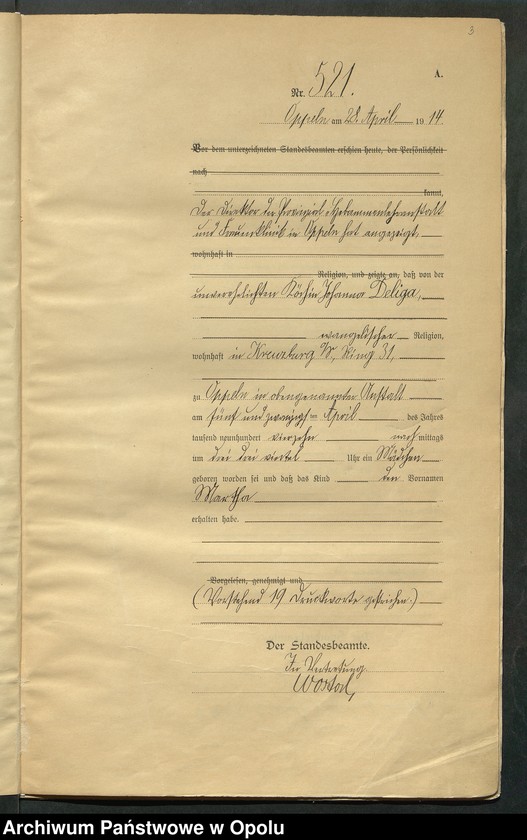 3
A.
Nr. 521.
Oppeln am 28. April 1914
Vor dem unterzeichneten Standesbeamten erschien heute, der Persönlichkeit
nach
kannt,
Der Direktor der Provinzial-Hebammenlehranstalt
und Frauenklinik in Oppeln hat angezeigt,
wohnhaft in
Religion, und zeigte an, daß von der
unverehelichten Köchin Johanna Deliga,
evangelischer Religion,
wohnhaft in Kreuzburg O/S, Ring 31,
zu Oppeln in obengenannter Anstalt
am fünf und zwanzigsten April des Jahres
tausend neunhundert vierzehn nachmittags
um drei drei viertel Uhr ein Mädchen
geboren worden sei und daß das Kind den Vornamen
Martha
erhalten habe.
Vorgelesen, genehmigt und
(Vorstehend 19 Druckworte gestrichen.)
Der Standesbeamte.
In Vertretung.
Archiwum Państwowe w Opolu